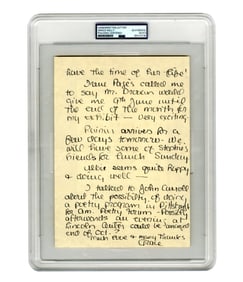 have the time of her life!
Jane Page's called me
to say Mr. would
give me 9th June until
the end of the month for
my exhibit — very exciting
arrives for a
few days tomorrow — We
will have some of Stephie's
friends for lunch Sunday
seems quite happy
& doing well —
I talked to John Carroll
about the possibility of doing
a poetry program in Pittsburgh
for Am. Poetry Forum — Possibly
afterwards an evening at
Lincoln Center could be arranged
end of Oct.
Much love & many thanks
Grace